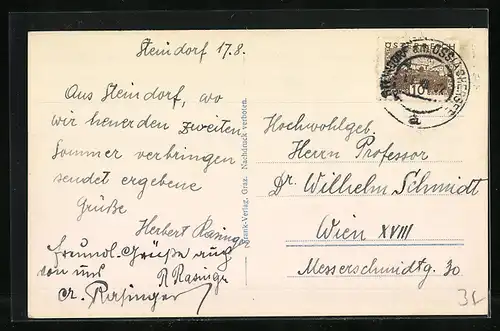 Steindorf 17.8.
Aus Steindorf, wo
wir heuer den zweiten
Sommer verbringen
sendet ergebene
Grüße
Herbert Rasinger
freundl. Grüße auch
von uns R Rasinger
A. Rasinger
Frank-Verlag, Graz. Nachdruck verboten.
STEINDORF a. OSSIACHERSEE
a
ÖSTERREICH
10
Hochwohlgeb.
Herrn Professor
Dr. Wilhelm Schmidt
Wien XVIII
Messerschmidtg. 30